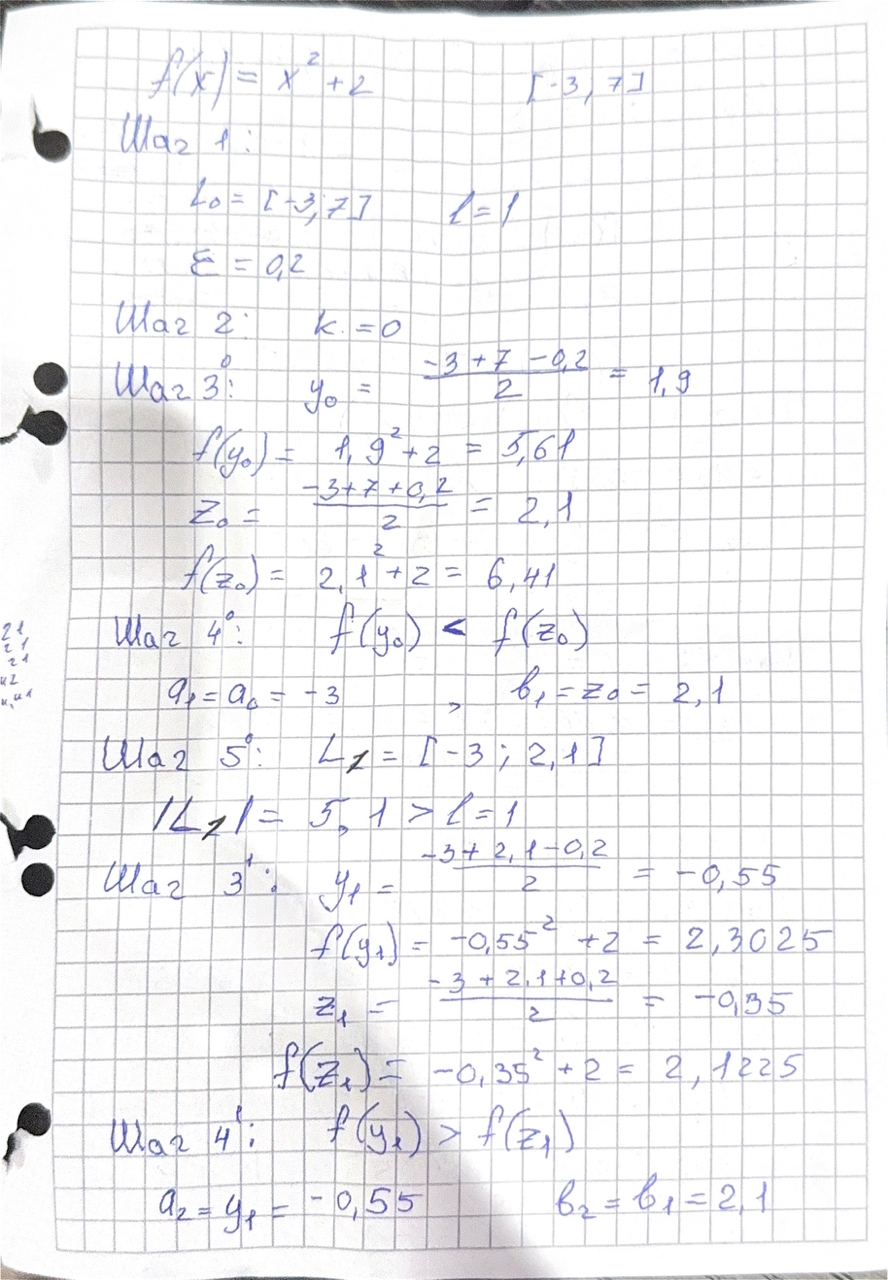 f(x) = x² + 2 [-3, 7]
Шаг 1:
L₀ = [-3; 7] l = 1
ε = 0,2
Шаг 2: k = 0
Шаг 3⁰: y₀ = (-3 + 7 - 0,2)/2 = 1,9
f(y₀) = 1,9² + 2 = 5,61
z₀ = (-3 + 7 + 0,2)/2 = 2,1
f(z₀) = 2,1² + 2 = 6,41
Шаг 4⁰: f(y₀) < f(z₀)
a₁ = a₀ = -3 , b₁ = z₀ = 2,1
Шаг 5⁰: L₁ = [-3; 2,1]
|L₁| = 5,1 > l = 1
Шаг 3¹: y₁ = (-3 + 2,1 - 0,2)/2 = -0,55
f(y₁) = -0,55² + 2 = 2,3025
z₁ = (-3 + 2,1 + 0,2)/2 = -0,35
f(z₁) = -0,35² + 2 = 2,1225
Шаг 4¹: f(y₁) > f(z₁)
a₂ = y₁ = -0,55 b₂ = b₁ = 2,1